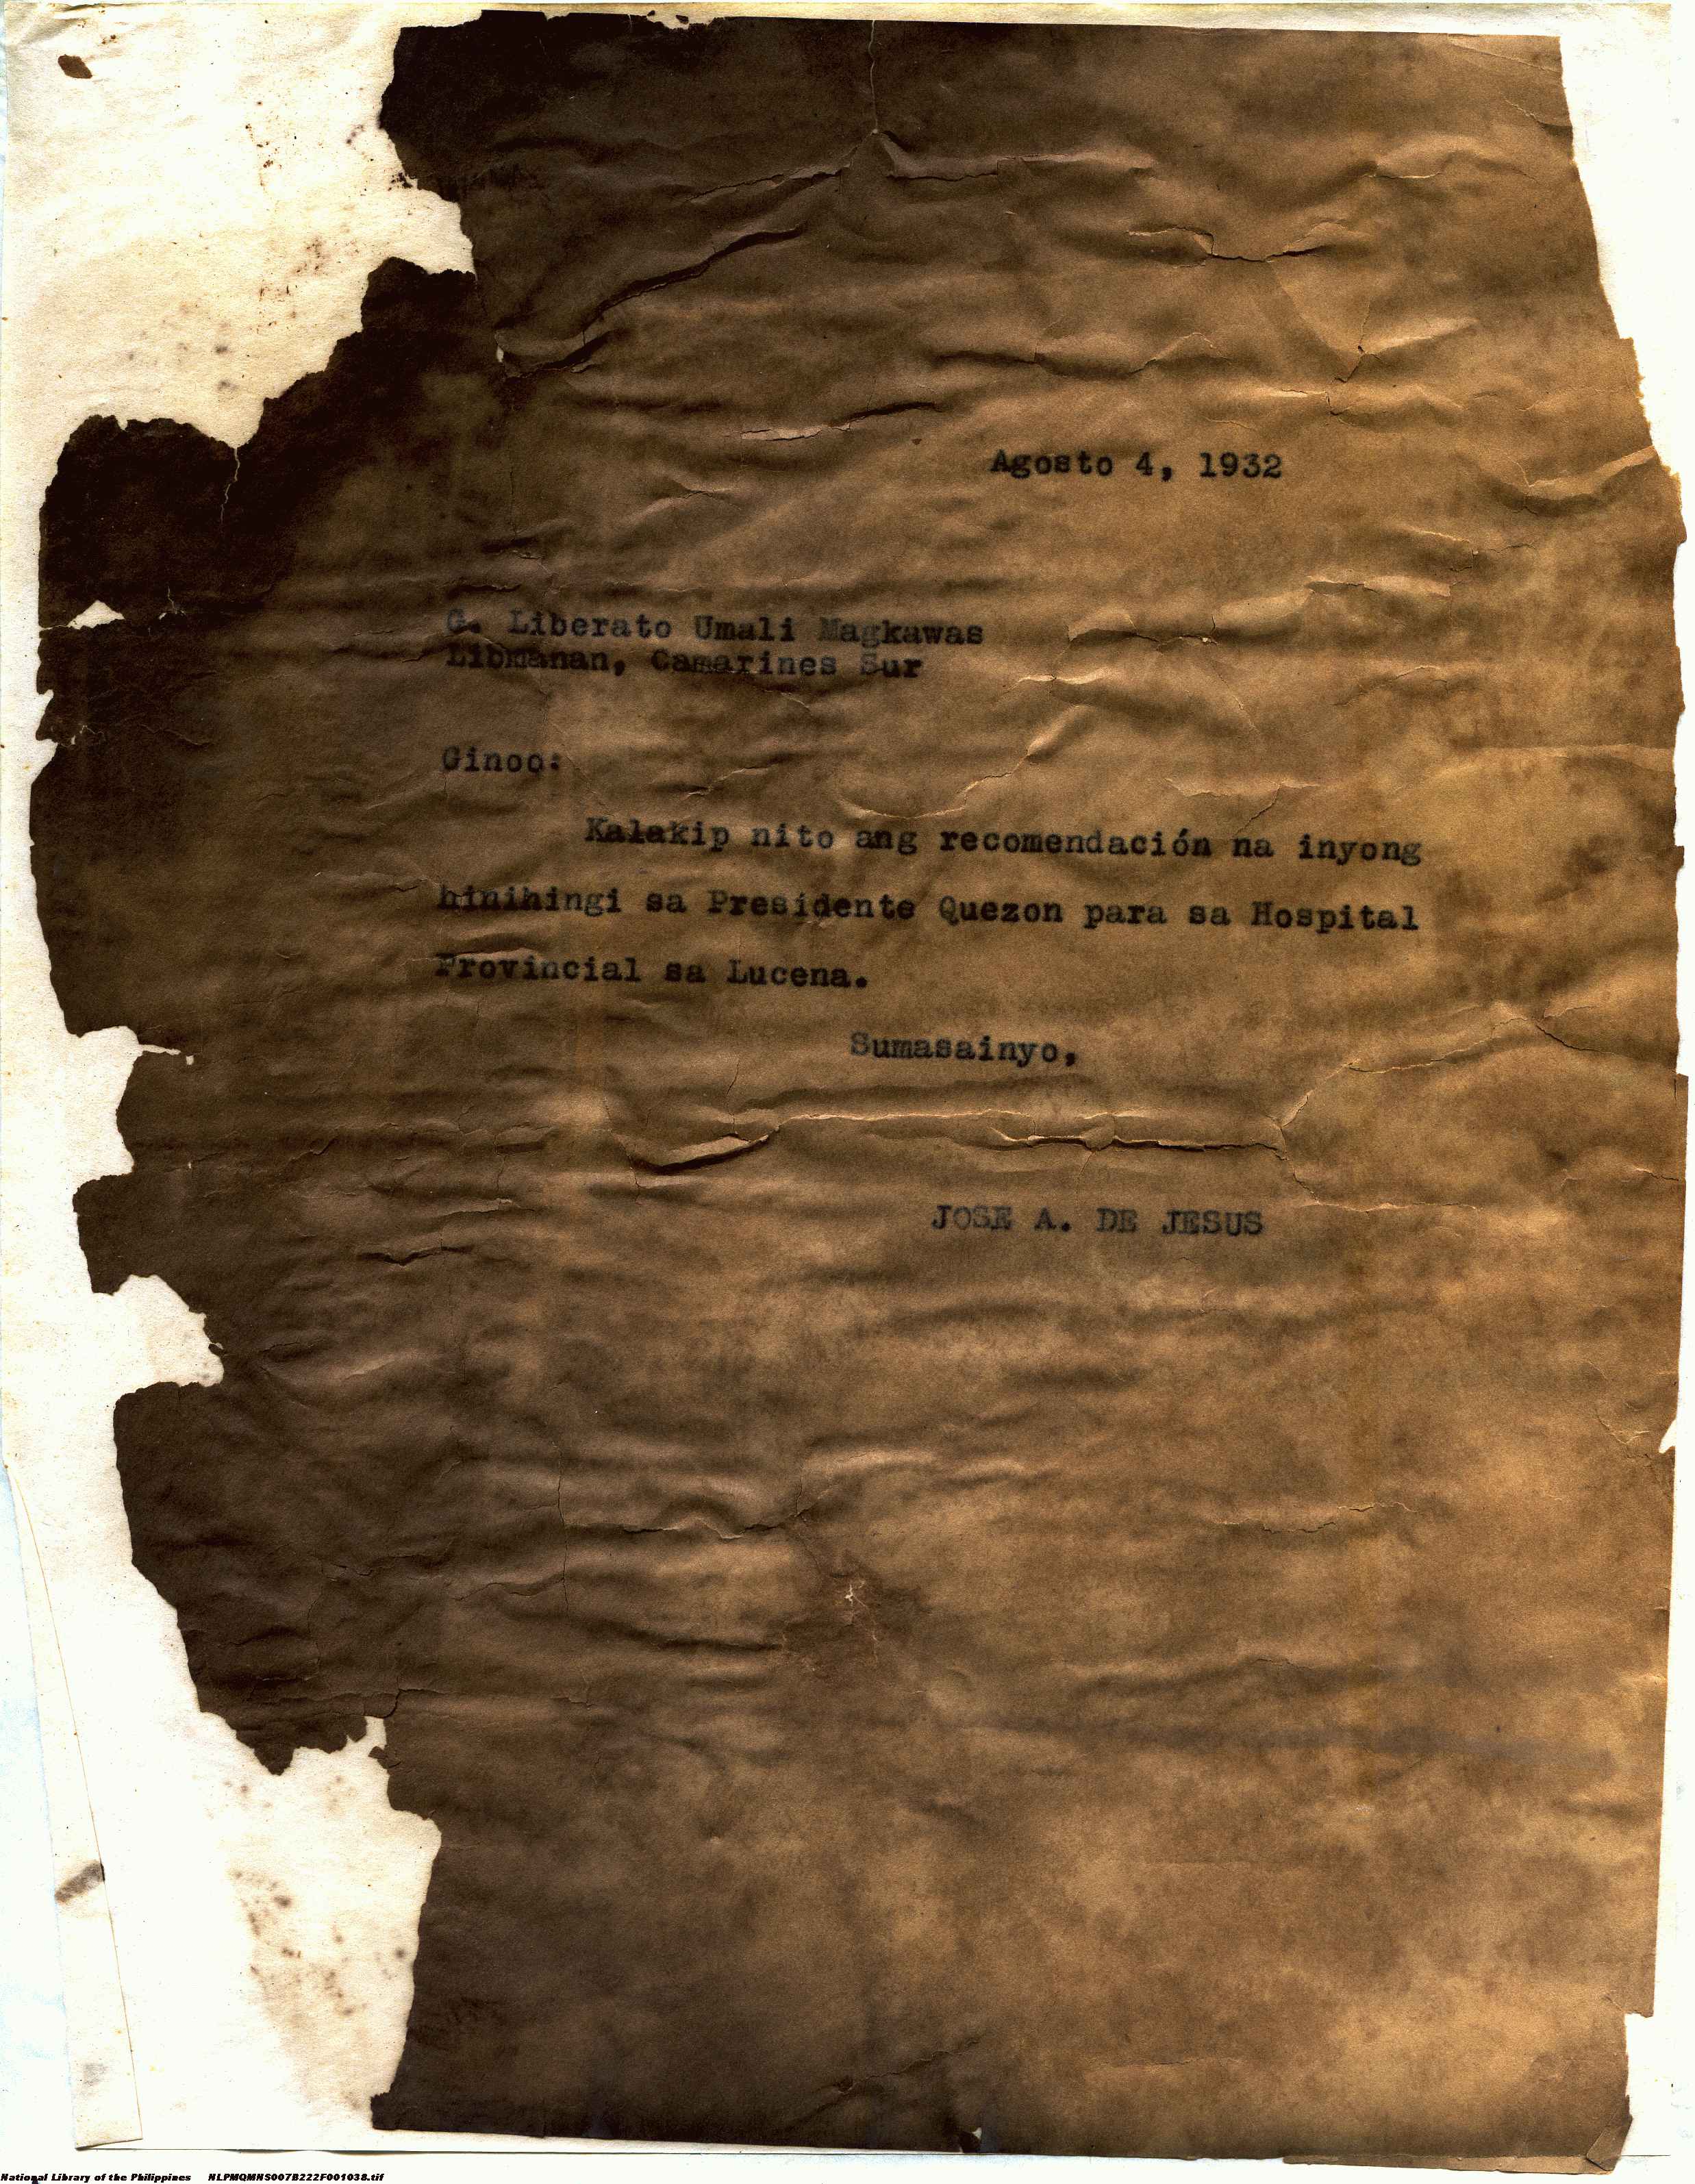 Agosto 4, 1932
G. Liberato Umali Magkawas
Libmanan, Camarines Sur
Ginoo:
Kalakip nito ang recomendación na inyong
hinihingi sa Presidente Quezon para sa Hospital
Provincial sa Lucena.
Sumasainyo,
JOSE A. DE JESUS
National Library of the Philippines NLPMQMNS007B222F001038.tif